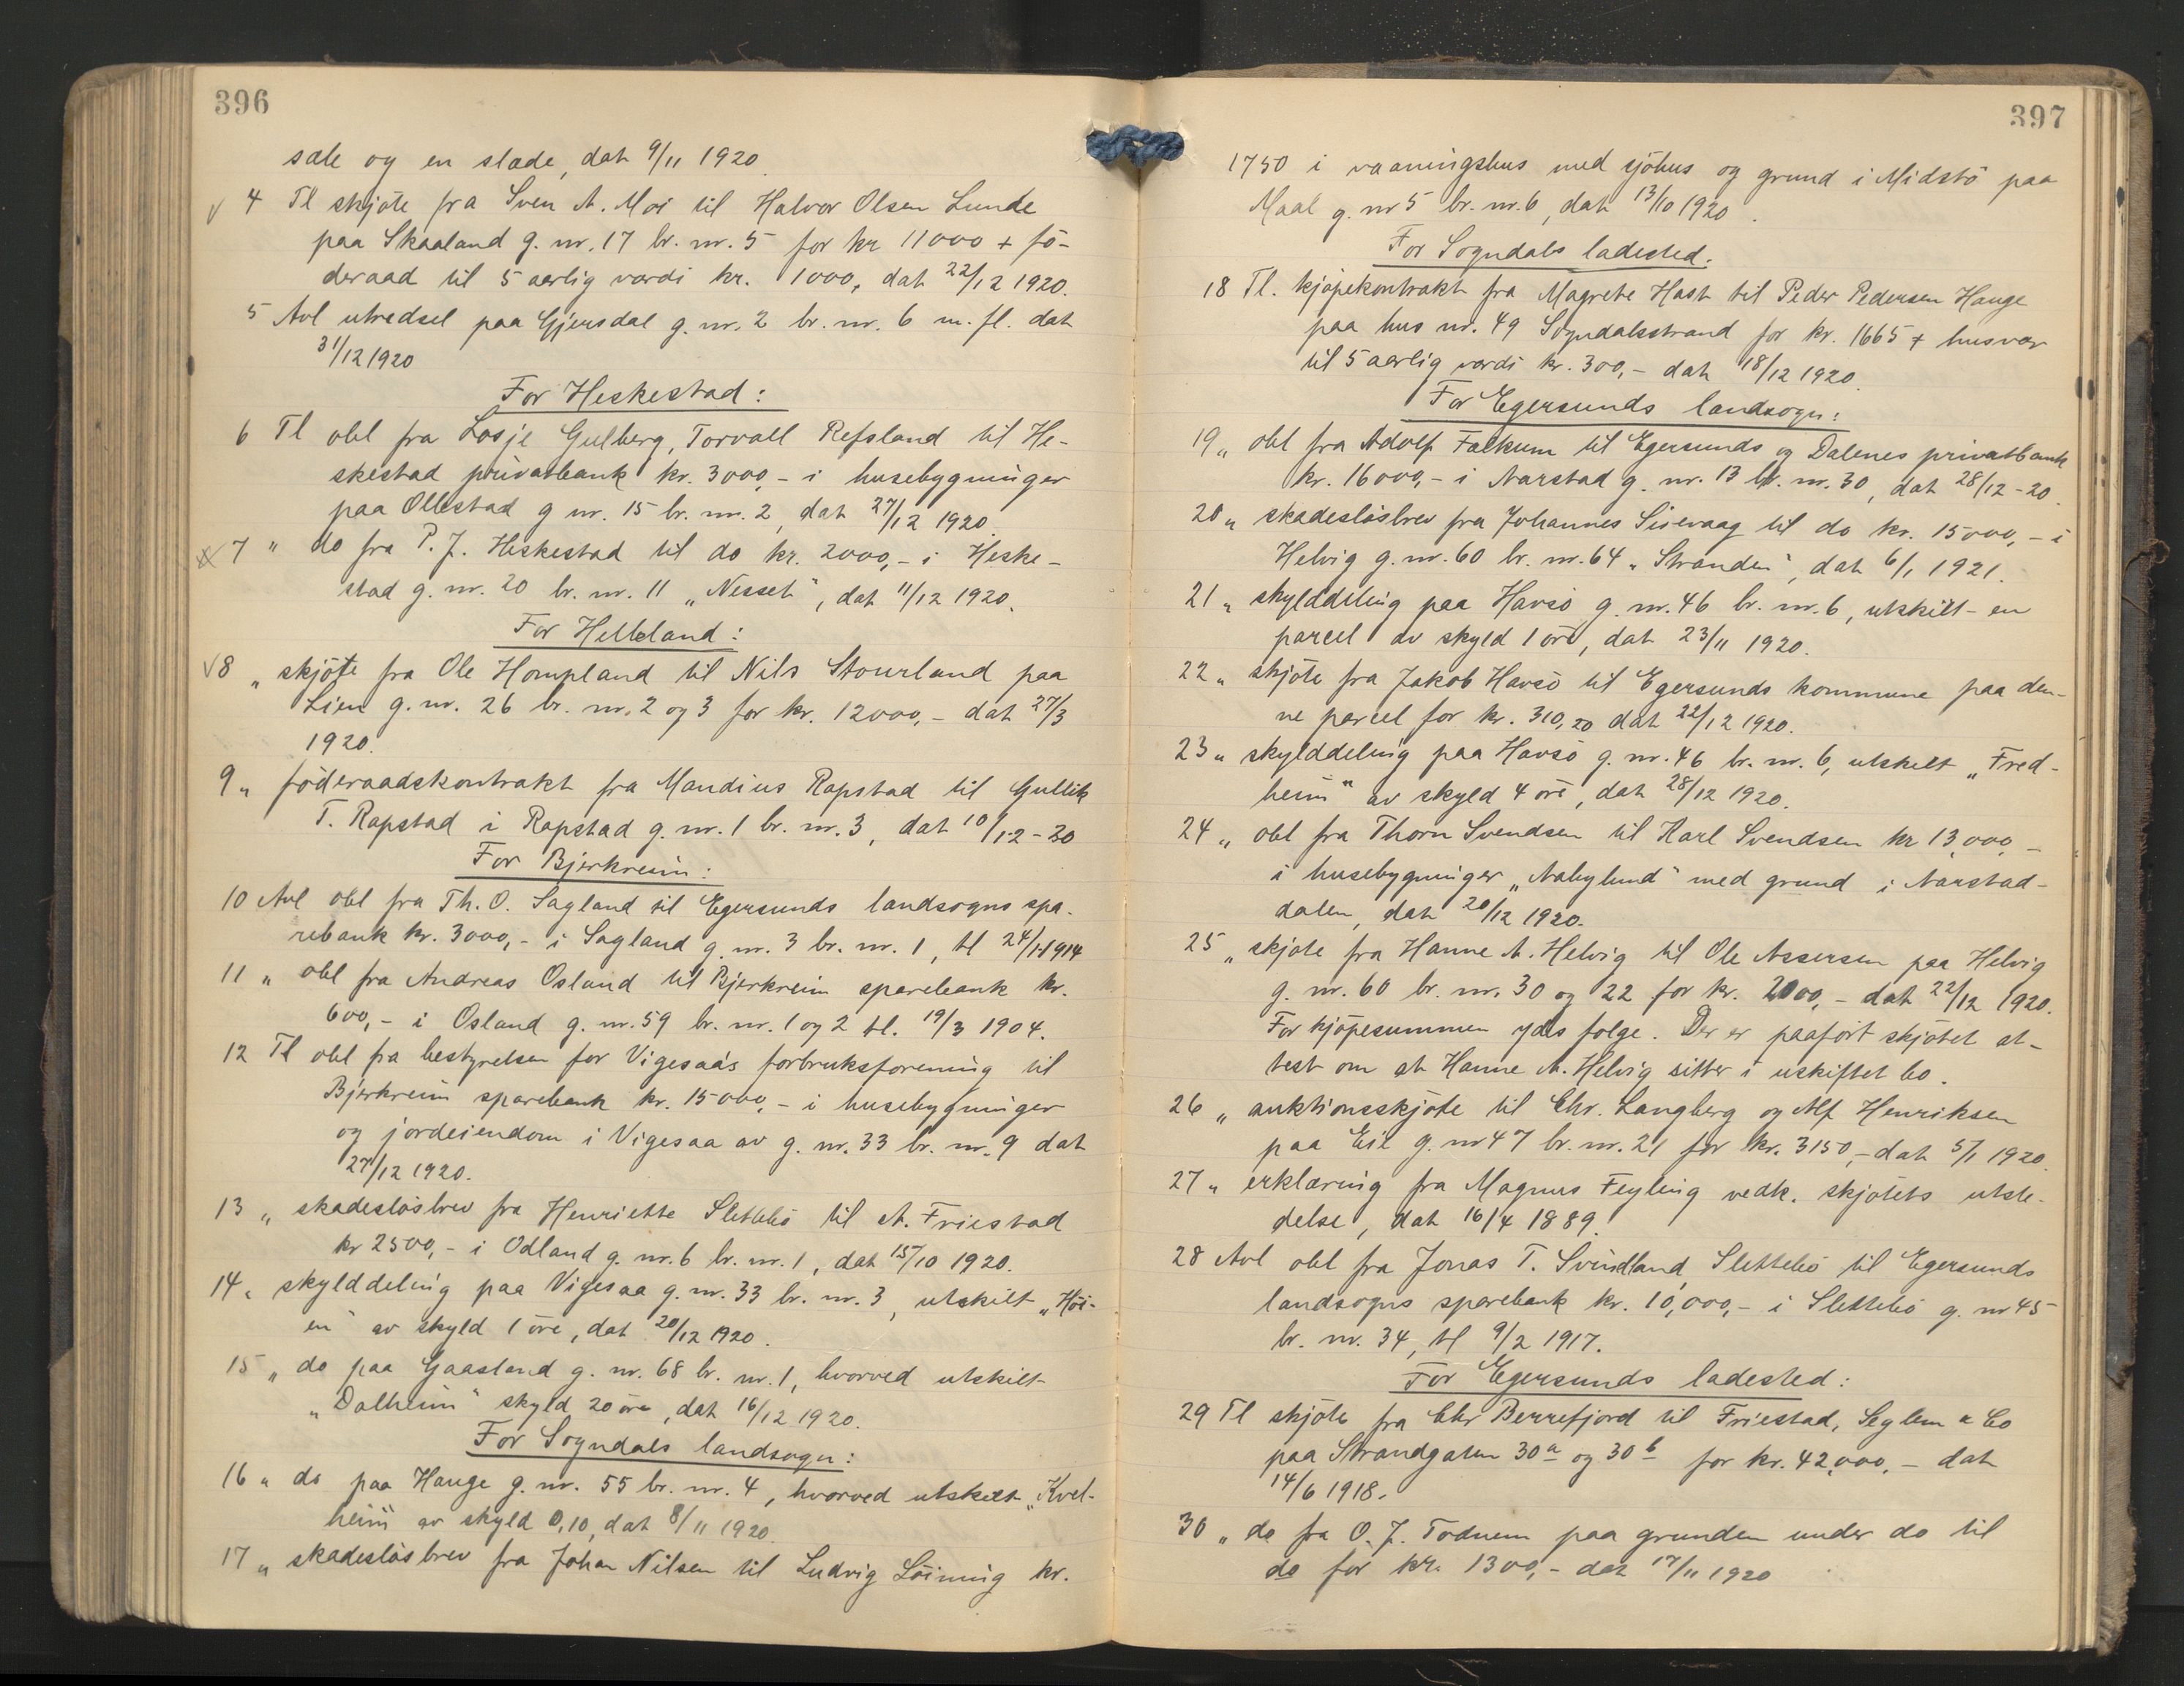 396
sæle og en slæde, dat 9/11 1920.
√ 4 Tl skjøte fra Sven A. Moi til Halvor Olsen Lunde
paa Skaaland g. nr. 17 br. nr. 5 for kr 11000 + fö-
deraad til 5 aarlig værdi kr. 1000, dat 22/12 1920.
5 Avl utredsel paa Gjersdal g. nr. 2 br. nr. 6 m. fl. dat
31/12 1920
For Heskestad:
6 Tl obl fra Losje Gulberg, Torvall Refsland til He-
skestad privatbank kr. 3000,- i husebygninger
paa Ollestad g nr. 15 br. nr. 2, dat 27/12 1920.
7 " do fra P. J. Heskestad til do kr. 2000,- i Heske-
stad g. nr. 20 br. nr. 11 „Nesset", dat 11/12 1920.
For Helleland:
√8 „ skjöte fra Ole Hompland til Nils Stourland paa
Lien g. nr. 26 br. nr. 2 og 3 for kr. 12000,- dat 27/3
1920.
9 „ föderaadskontrakt fra Mandius Rapstad til Gullik
T. Rapstad i Rapstad g. nr. 1 br. nr. 3, dat 10/12-20
For Bjerkreim:
10 Avl obl fra Th. O. Sagland til Egersunds landsogns spa-
rebank kr. 3000,- i Sagland g. nr. 3 br. nr. 1, tl 24/1-1914
11 „ obl fra Andreas Osland til Bjerkreim sparebank kr.
600,- i Osland g. nr. 59 br. nr. 1 og 2 tl. 19/3 1904.
12 Tl obl fra bestyrelsen for Vigesaa's forbruksforening til
Bjerkreim sparebank kr. 15000,- i husebygninger
og jordeiendom i Vigesaa av g. nr. 33 br. nr. 9 dat
27/12 1920.
13 „ skadeslösbrev fra Henriette Slettebö til A. Friestad
kr 2500,- i Odland g. nr. 6 br. nr. 1, dat 15/10 1920.
14 „ skylddeling paa Vigesaa g. nr. 33 br. nr. 3, utskilt „Höi-
en" av skyld 1 öre, dat 20/12 1920.
15 „ do paa Gaasland g. nr. 68 br. nr. 1, hvorved utskilt
„Dalheim" skyld 20 öre, dat 16/12 1920.
For Sogndals landsogn:
16 „ do paa Hauge g. nr. 55 br. nr. 4, hvorved utskilt „Kvel-
heim" av skyld 0,10, dat 8/11 1920.
17 „ skadeslösbrev fra Johan Nilsen til Ludvig Löining kr.
397
1750 i vaaningshus med sjöhus og grund i Midstö paa
Maal g. nr 5 br. nr. 6, dat 13/10 1920.
For Sogndals ladested.
18 Tl. kjöpekontrakt fra Magrete Hast til Peder Pedersen Hauge
paa hus nr. 49 Sogndalsstrand for kr. 1665 + husvær
til 5 aarlig værdi kr. 300,- dat 18/12 1920.
For Egersunds landsogn:
19 „ obl fra Adolf Falkum til Egersunds og Dalenes privatbank
kr. 16000,- i Aarstad g. nr. 13 br. nr. 30, dat 28/12-20.
20 „ skadeslösbrev fra Johannes Sisevaag til do kr. 15000,- i
Helvig g. nr. 60 br. nr. 64 „Stranden", dat 6/1 1921.
21 „ skylddeling paa Havsö g. nr. 46 br. nr. 6, utskilt en
parcel av skyld 1 öre, dat 23/11 1920.
22 „ skjöte fra Jakob Havsö til Egersunds kommune paa den-
ne parcel for kr. 310,20 dat 22/12 1920.
23 „ skylddeling paa Havsö g. nr. 46 br. nr. 6, utskilt „Fred-
heim" av skyld 4 öre, dat 28/12 1920.
24 „ obl fra Thorn Svendsen til Karl Svendsen kr 13,000,-
i husebygninger „Nabylund" med grund i Aarstad-
dalen, dat 20/12 1920.
25 „ skjöte fra Hanne A. Helvig til Ole Assersen paa Helvig
g. nr. 60 br. nr. 30 og 22 for kr. 2000,- dat 22/12 1920.
For kjöpesummen ydes folge. Der er paafört skjötet at-
test om at Hanne A. Helvig sitter i uskiftet bo.
26 „ auktionsskjöte til Chr. Langberg og Alf Henriksen
paa Eie g. nr 47 br. nr. 21 for kr. 3150,- dat 5/1 1920.
27 „ erklæring fra Magnus Feyling vedk. skjötets utste-
delse, dat 16/4 1889.
28 Avl obl fra Jonas T. Svindland, Slettebö til Egersunds
landsogns sparebank kr. 10,000,- i Slettebö g. nr 45
br. nr. 34, tl 9/2 1917.
For Egersunds ladested:
29 Tl skjöte fra Chr Berrefjord til Friestad, Seglem & Co
paa Strandgaten 30a og 30b for kr. 42,000,- dat
14/6 1918.
30 „ do fra O. J. Todnem paa grunden under do til
do for kr. 1300,- dat 17/11 1920